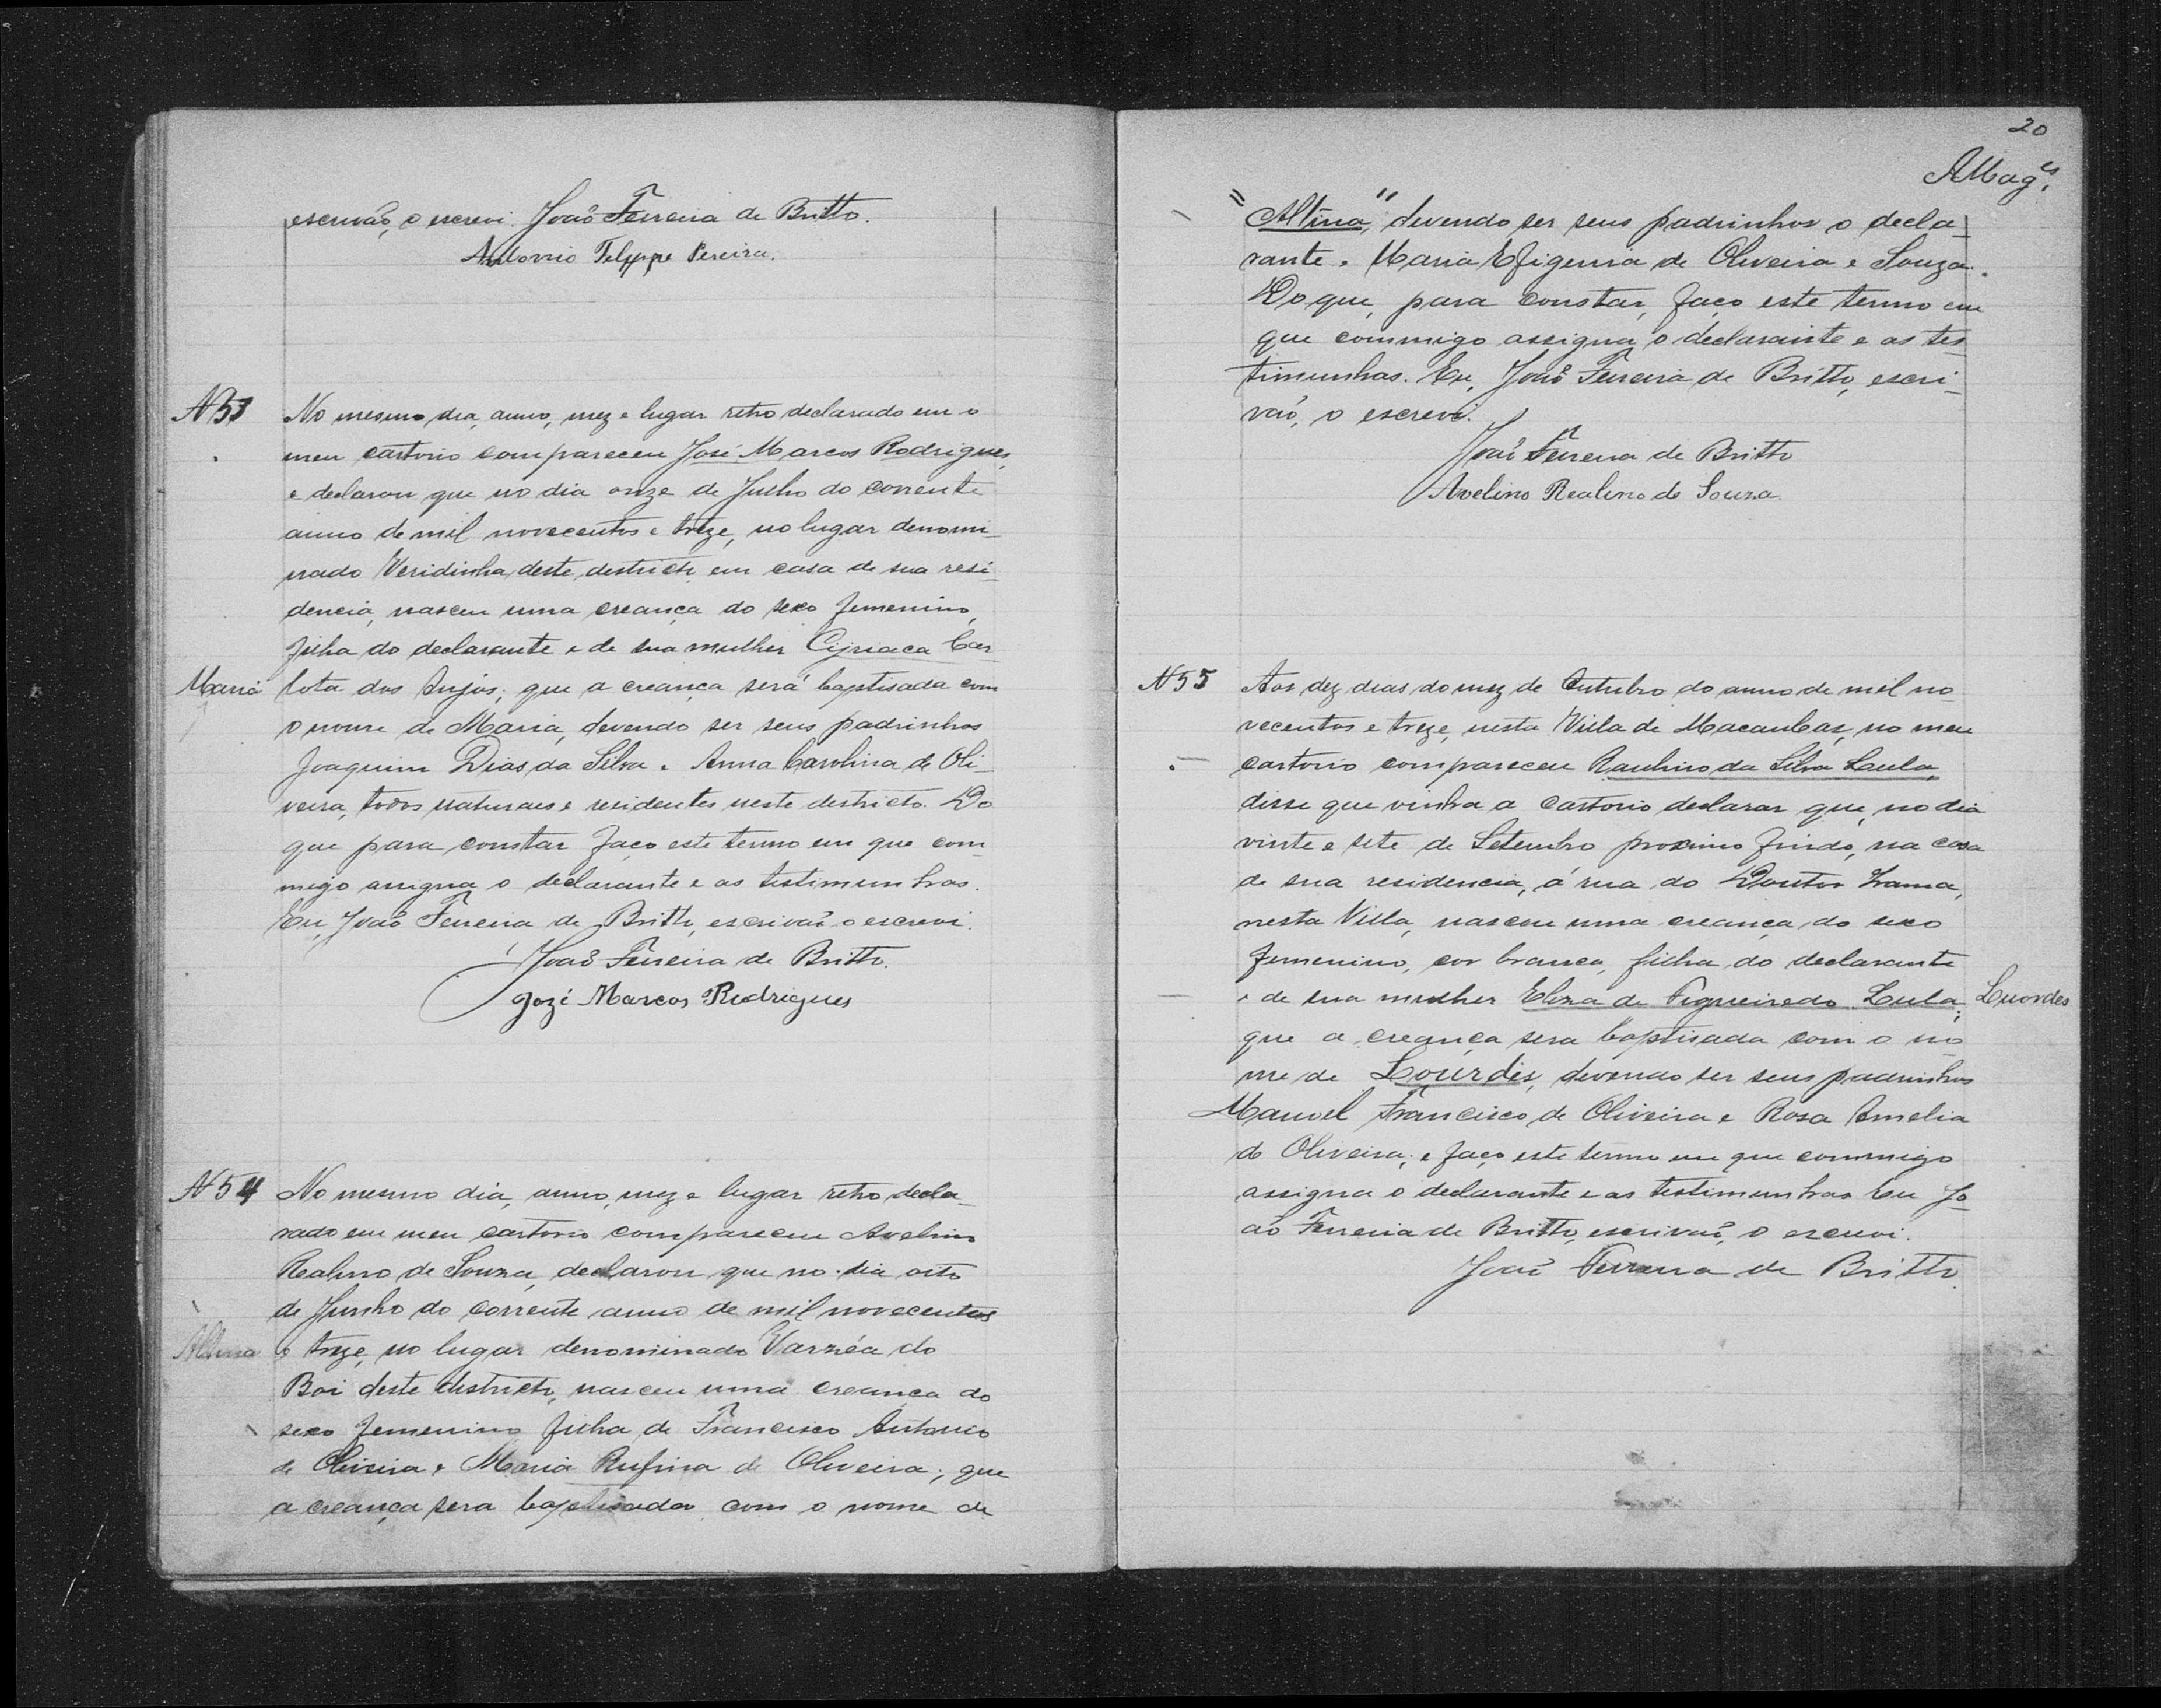 escrivaõ, o escrevi. Joaõ Ferreira de Britto.
Antonio Felyppe Pereira.
N 53
No mesmo dia, anno, mez e lugar retro declarado em o
meu cartorio compareceu José Marcos Rodrigues,
e declarou que no dia onze de Julho do corrente
anno de mil novecentos e treze, no lugar denomi-
nado Veridinha deste destricto, em casa de sua resi-
dencia, nasceu uma creança do sexo femenino,
filha do declarante e de sua mulher Cyriaca Car-
Maria
lota dos Anjos; que a creança será baptisada com
o nome de Maria, devendo ser seus padrinhos
Joaquim Dias da Silva e Anna Carolina de Oli-
veira, todos naturaes e residentes neste destricto. Do
que para constar faço este termo em que com-
migo assigna o declarante e as testimunhas.
Eu, Joaõ Ferreira de Britto, escrivaõ o escrevi.
Joaõ Ferreira de Britto.
Jozé Marcos Rodrigues
N 54
No mesmo dia, anno, mez e lugar retro decla-
rado em meu cartorio compareceu Avelino
Realino de Souza, declarou que no dia oito
de Junho do corrente anno de mil novecentos
Altina
e treze, no lugar denominado Varzéa do
Boi deste destricto, nasceu uma creança do
sexo femenino filha de Francisco Antonio
de Oliveira e Maria Rufina de Oliveira; que
a creança sera baptisada com o nome de
20
"Altina", devendo ser seus padrinhos o decla-
rante e Maria Efigenia de Oliveira e Souza.
Do que, para constar, faço este termo em
que commigo assigna o declarante e as tes-
timunhas. Eu, Joaõ Ferreira de Britto, escri-
vaõ, o escrevi.
Joaõ Ferreira de Britto
Avelino Realino de Souza.
N 55
Aos dez dias do mez de Outubro do anno de mil no-
vecentos e treze, nesta Villa de Macaubas, no meu
cartorio compareceu Raulino da Silva Lula,
disse que vinha a cartorio declarar que, no dia
vinte e sete de Setembro proximo findo, na casa
de sua residencia, á rua do Doutor
nesta Villa, nasceu uma creança do sexo
femenino, cor branca, filha do declarante
e de sua mulher Eliza de Figueiredo Lula;
Luordes
que a creança sera baptisada com o no-
me de Lourdes, devendo ser seus padrinhos
Manoel Francisco de Oliveira e Rosa Amelia
de Oliveira; e faço este termo em que commigo
assigna o declarante e as testimunhas Eu Jo-
aõ Ferreira de Britto, escrivaõ, o escrevi.
Joaõ Ferreira de Britto.